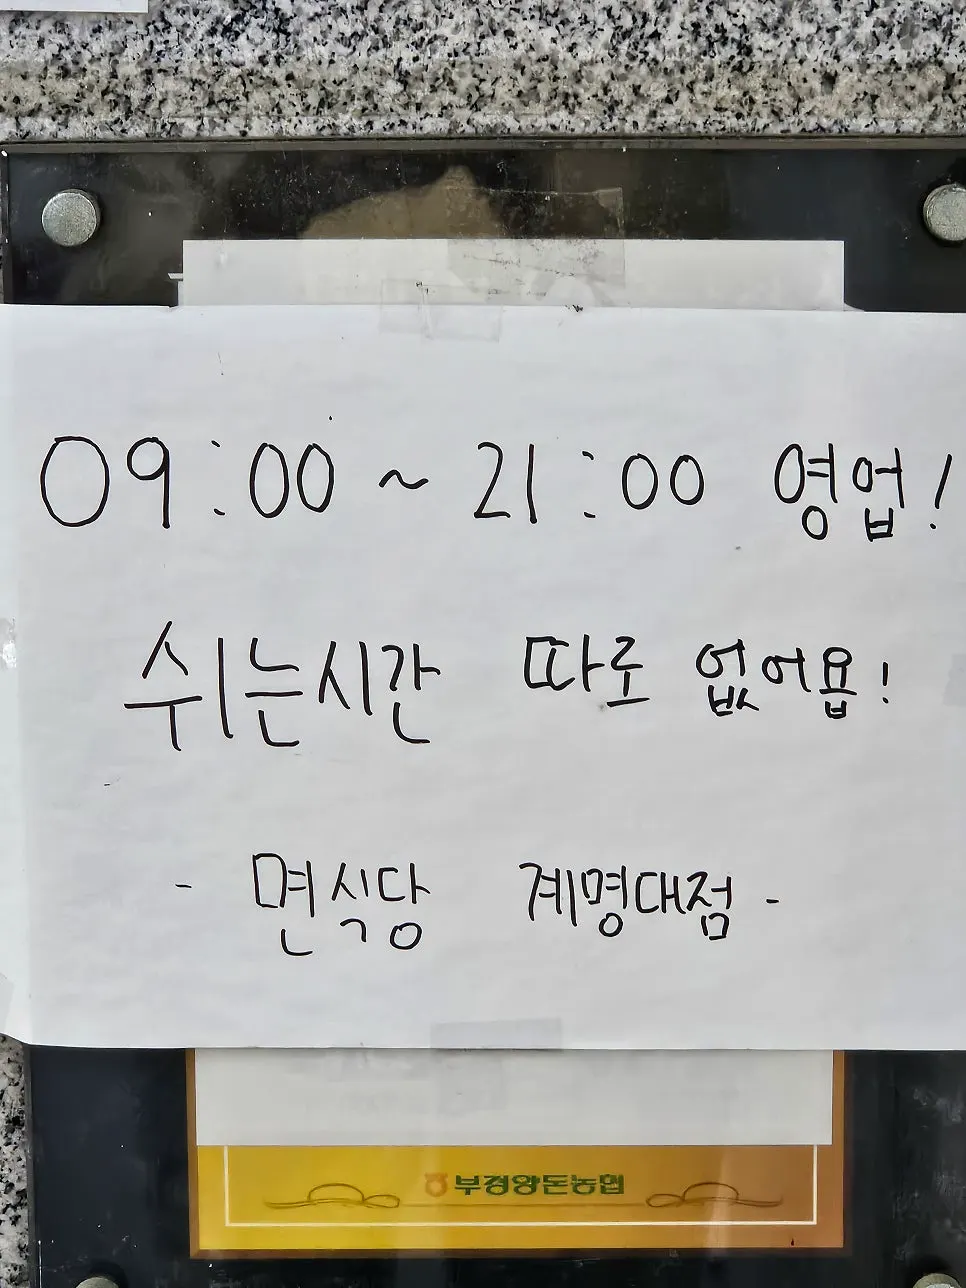 09:00 ~ 21:00 영업!
쉬는시간 따로 없어욥!
- 면식당 계명대점 -
부경양돈농협